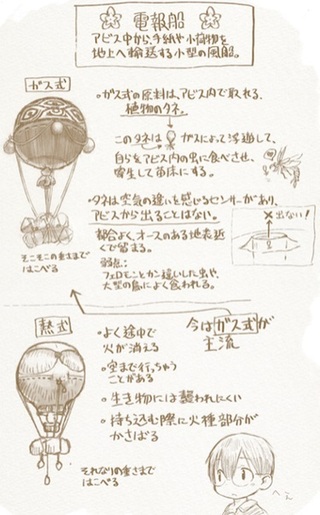 電報船
アビス中から、手紙や小荷物を
地上へ輸送する小型の風船。
ガス式
・ガス式の原料は、アビス内で取れる、
植物のタネ。
このタネは ガスによって浮遊して、
自らをアビス内の虫に食べさせ、
寄生して苗床にする。
・タネは空気の違いを感じるセンサーがあり、
アビスから出ることはない。
都合よく、オースのある地表近
くで留まる。
弱点:
フェロモンとカン違いした虫や、
大型の鳥によく食われる。
✕出ない!
そこそこの重さまで
はこべる
今はガス式が
主流
熱式
・よく途中で
火が消える
・空まで行っちゃう
ことがある
・生き物には襲われにくい
・持ち込む際に火種部分が
かさばる
それなりの重さまで
はこべる
へぇ